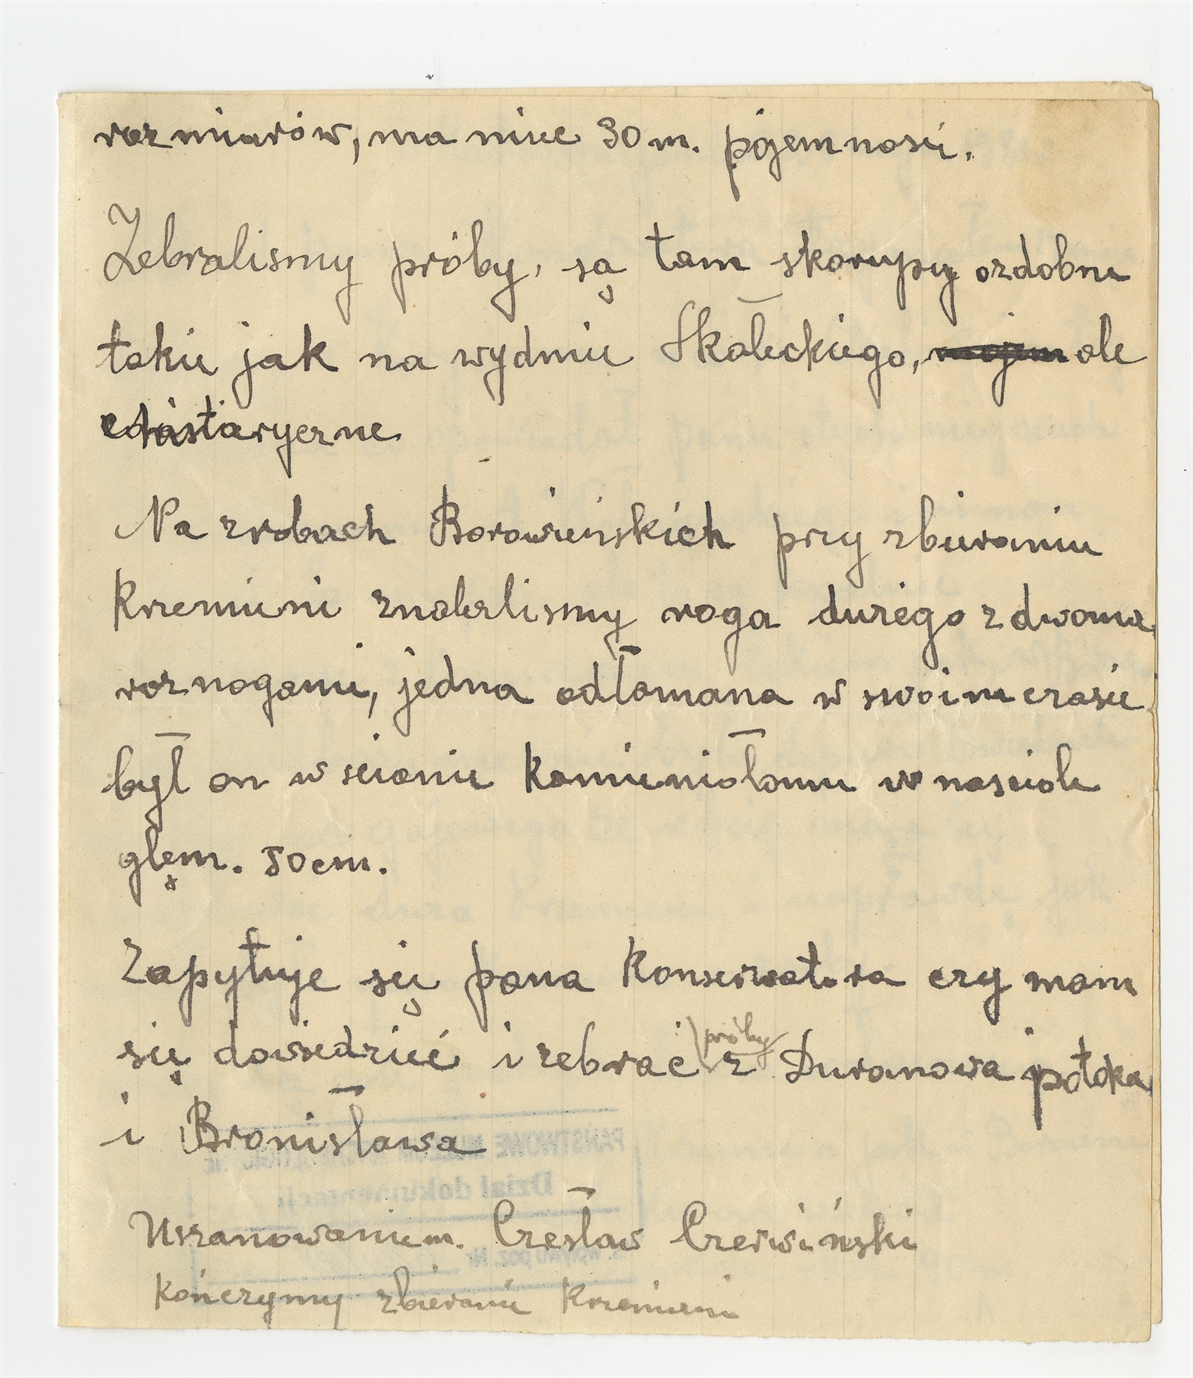 rozmiarów, ma nice 30 m. pojemnosci.
Zebralismy próby, są tam skorupy ozdobne
takie jak na wydmie Skałeckiego, ale
charistaryczne
Na zrobach Borowieńskich przy zbieraniu
krzemieni znalezlismy roga dużego z dwoma
roznogami, jedna odłamana w swoim czasie
był on w scianie kamieniołomu w nasciole
głęm. 50 cm.
Zapytuje się pana konserwatora czy mam
się dowiedzieć i zebrac próby z Duranowa potoka
i Bronisława
Uszanowaniem. Czesław Czerwiński
Kończymy zbieranie krzemieni
PAŃSTWOWE
Dział dokumentacji